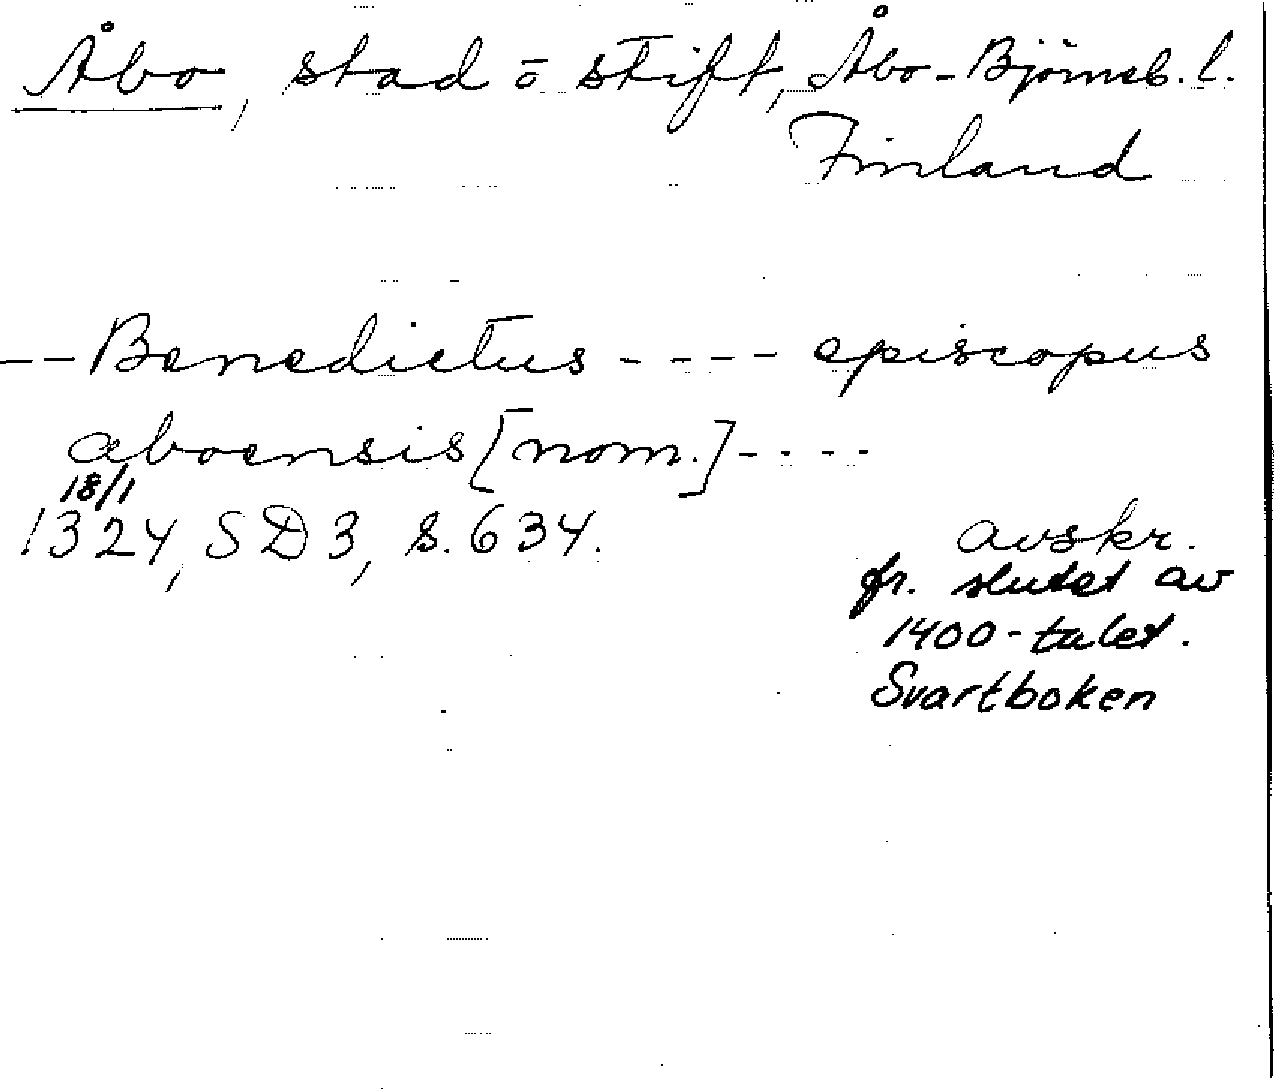 Åbo, stad o stift, Åbo-Björneb. l.
Finland
-- Benedictus ---- episcopus
aboensis [nom.] ----
18/1
1324, SD 3, s. 634.
avskr.
fr. slutet av
1400-talet.
Svartboken